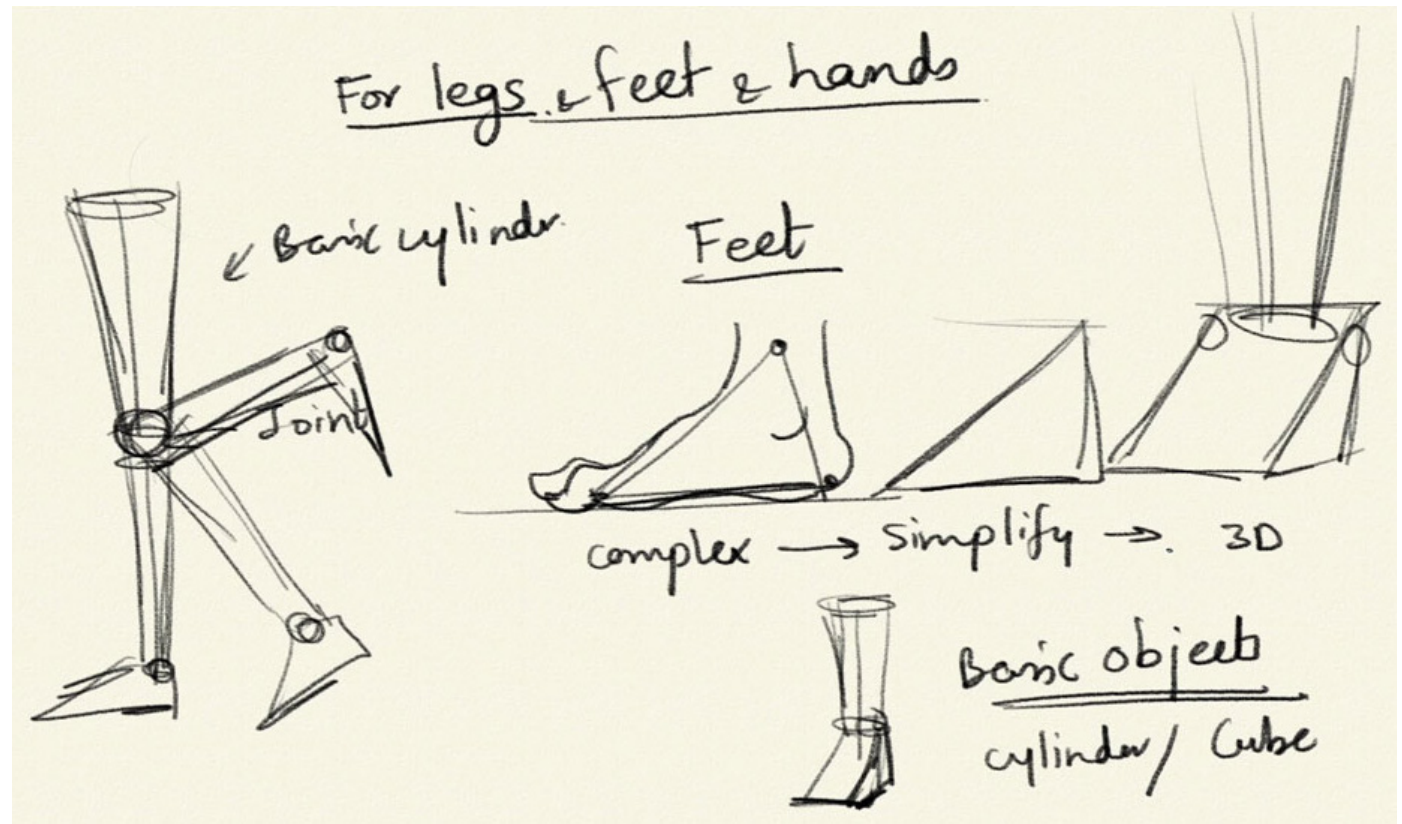 For legs & feet & hands
Basic cylinder
Feet
Joint
complex → Simplify → 3D
Basic objects
cylinder / Cube